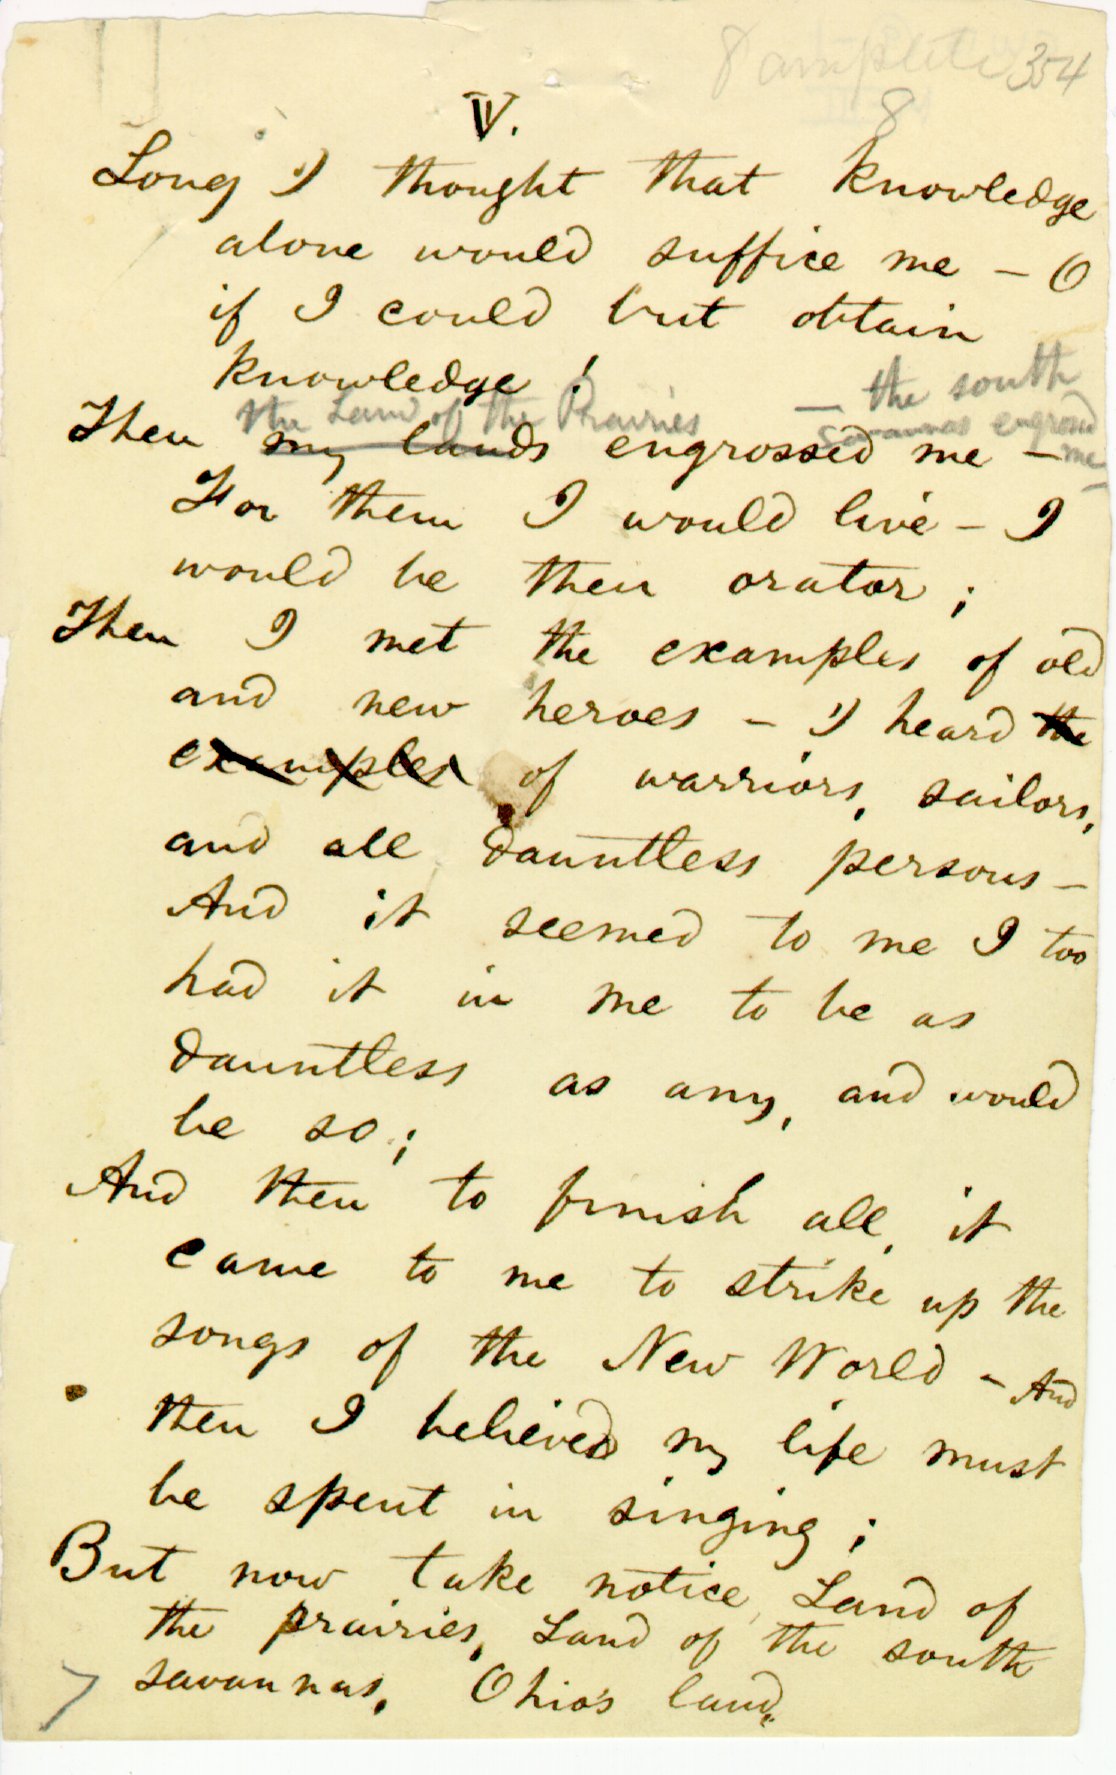 354
8
V.
Long I thought that knowledge
alone would suffice me — O
if I could but obtain
knowledge!
the Land of the Prairies — the south
savannas engrossed
me —
Then my lands engrossed me —
For them I would live — I
would be their orator;
Then I met the examples of old
and new heroes — I heard the
examples of warriors, sailors,
and all dauntless persons —
And it seemed to me I too
had it in me to be as
dauntless as any, and would
be so;
And then to finish all, it
came to me to strike up the
songs of the New World — And
then I believed my life must
be spent in singing;
But now take notice, Land of
the prairies, Land of the south
savannas, Ohio's land,
7